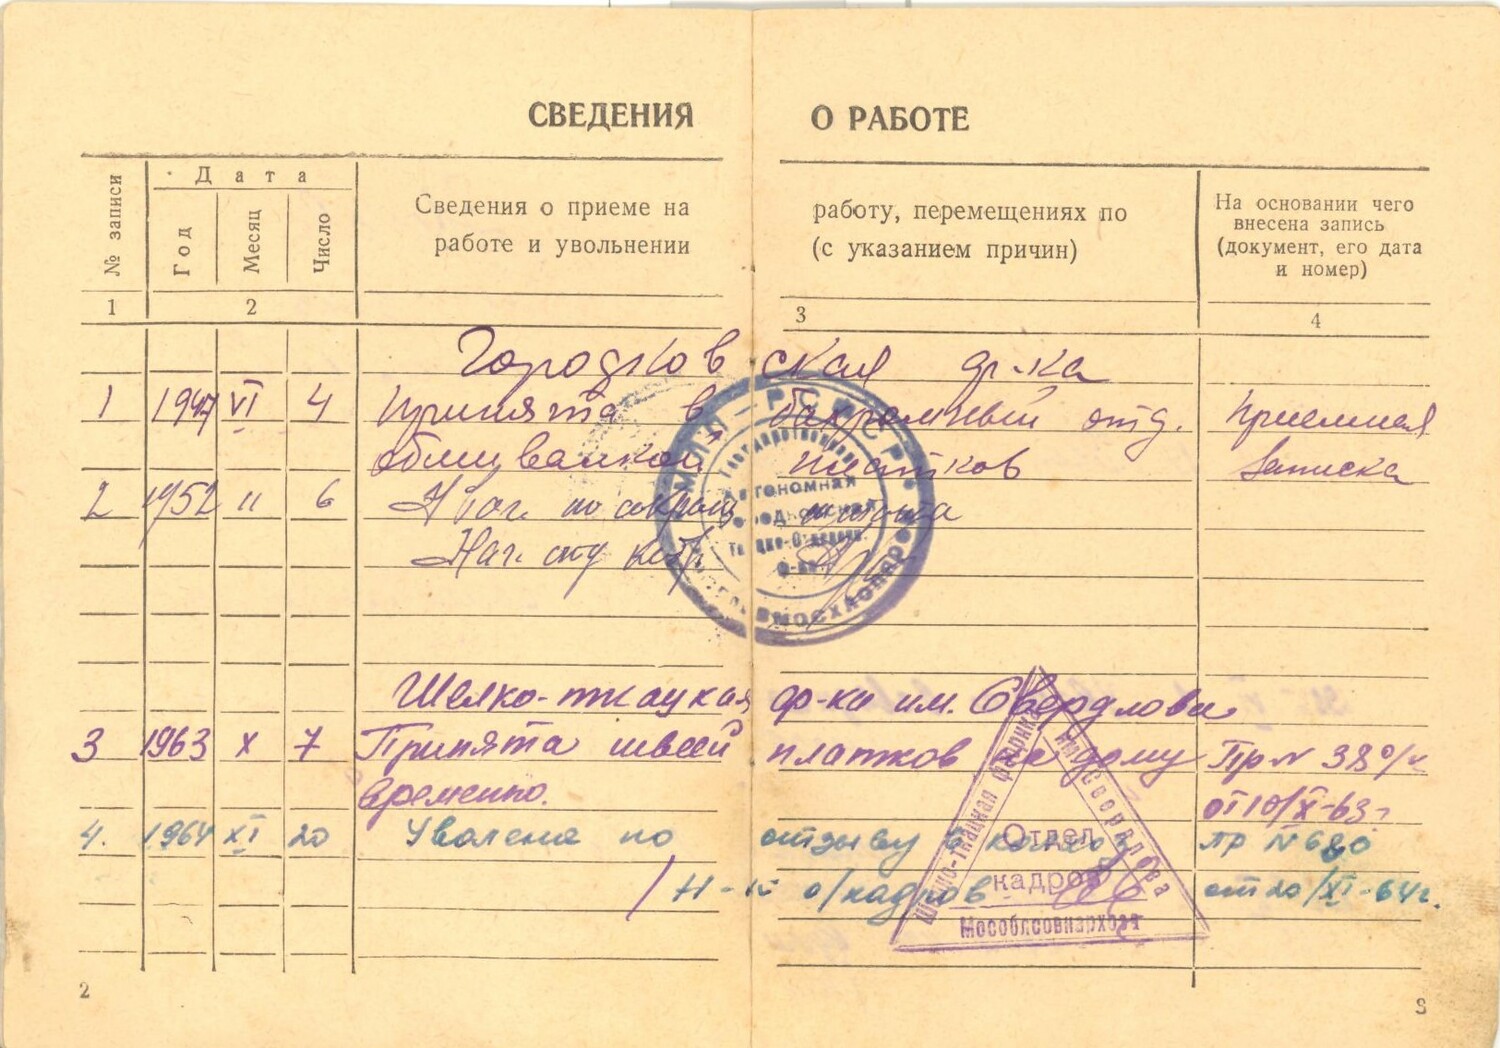 СВЕДЕНИЯ О РАБОТЕ
№ записи
Дата
Год
Месяц
Число
Сведения о приеме на работу, перемещениях по
работе и увольнении (с указанием причин)
На основании чего
внесена запись
(документ, его дата
и номер)
1 2 3 4
Городковская ф-ка
1 1947 VI 4 Принята в бахромный отд. Приемная
обшивалкой платков записка
2 1952 II 6
Нач.
МЛП-РСФСР
Автономная
Шелко-ткацкая ф-ка им. Свердлова
3 1963 X 7 Принята швеей платков на дому Пр N 380/к
временно. от 10/X-63г
4. 1964 XI 20 Уволена по отзыву в колхоз пр N 680
Н-к о/кадров от 20/XI-64г.
Шелко-ткацкая фабрика
им. Свердлова
Отдел
кадров
Мособлсовнархоза
2
3